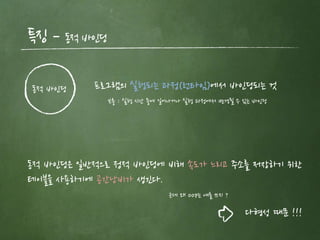 특징 - 동적 바인딩
동적 바인딩
프로그램의 실행되는 과정(런타임)에서 바인딩되는 것
보통 : 실행 시간 중에 일어나거나 실행 과정에서 변경될 수 있는 바인딩
동적 바인딩은 일반적으로 정적 바인딩에 비해 속도가 느리고 주소를 저장하기 위한
테이블을 사용하기에 공간낭비가 생긴다.
근데 왜 OOP는 얘를 쓰지 ?
다형성 때문 !!!